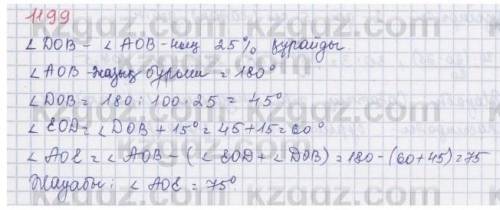 1199
∠DOB - ∠AOB-ның 25% құрайды
∠AOB-жазық бұрыш = 180°
∠DOB = 180 : 100 · 25 = 45°
∠EOD = ∠DOB + 15° = 45 + 15 = 60°
∠AOE = ∠AOB - (∠EOD + ∠DOB) = 180 - (60 + 45) = 75
Жауабы: ∠AOE = 75°
kzgdz.com